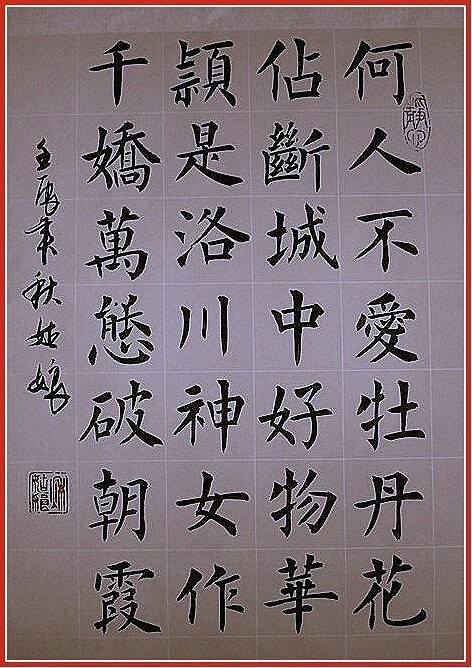 何人不愛牡丹花
佔斷城中好物華
頴是洛川神女作
千嬌萬態破朝霞
壬辰年秋姑娘